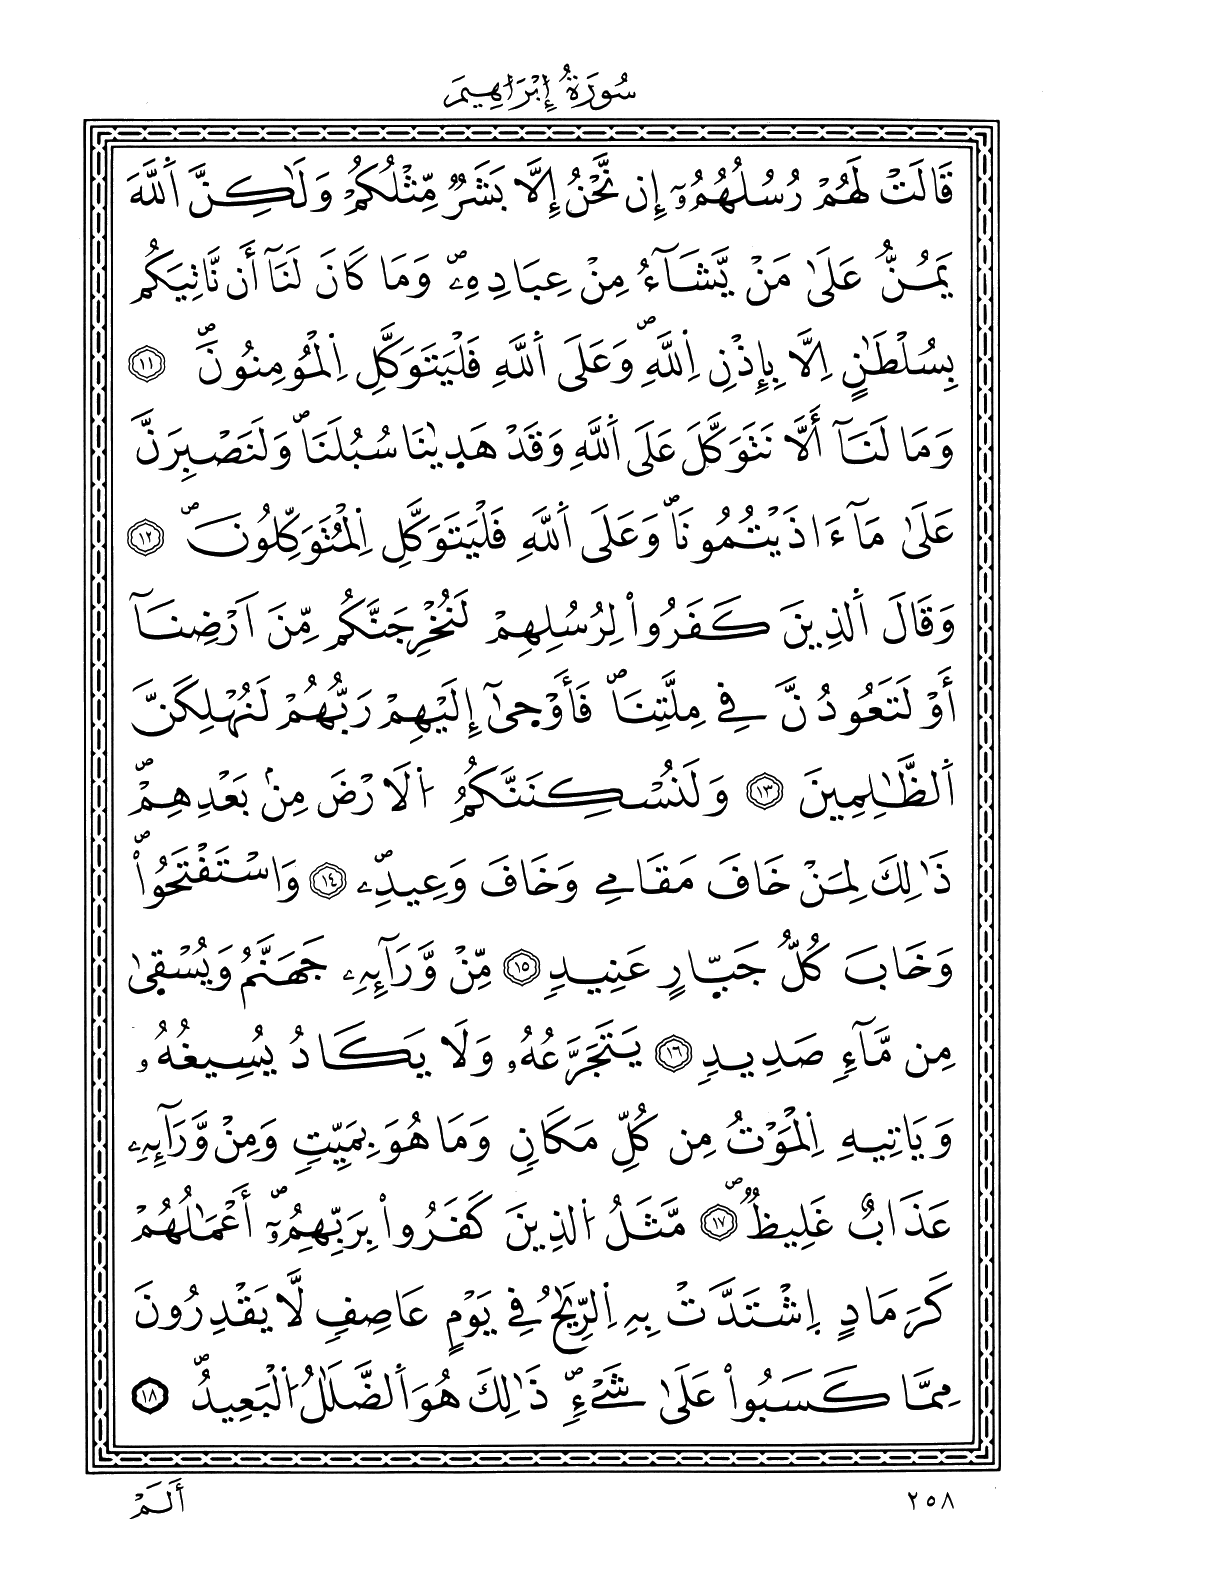 سُورَةُ إِبْرَاهِيمَ
قَالَتْ لَهُمْ رُسُلُهُمُۥٓ إِن نَّحْنُ إِلَّا بَشَرٌ مِّثْلُكُمْ وَلَٰكِنَّ اَ۬للَّهَ
يَمُنُّ عَلَىٰ مَنْ يَّشَآءُ مِنْ عِبَادِهِۦۖ وَمَا كَانَ لَنَآ أَن نَّاتِيَكُم
بِسُلْطَٰنٍ اِلَّا بِإِذْنِ اِ۬للَّهِۖ وَعَلَى اَ۬للَّهِ فَلْيَتَوَكَّلِ اِ۬لْمُومِنُونَۖ ١١
وَمَا لَنَآ أَلَّا نَتَوَكَّلَ عَلَى اَ۬للَّهِ وَقَدْ هَدِيٰنَا سُبُلَنَاۖ وَلَنَصْبِرَنَّ
عَلَىٰ مَآ ءَاذَيْتُمُونَاۖ وَعَلَى اَ۬للَّهِ فَلْيَتَوَكَّلِ اِ۬لْمُتَوَكِّلُونَۖ ١٢
وَقَالَ اَ۬لذِينَ كَفَرُواْ لِرُسُلِهِمْ لَنُخْرِجَنَّكُم مِّنَ اَرْضِنَآ
أَوْ لَتَعُودُنَّ فِے مِلَّتِنَاۖ فَأَوْحَىٰٓ إِلَيْهِمْ رَبُّهُمْ لَنُهْلِكَنَّ
اَ۬لظَّٰلِمِينَ ١٣ وَلَنُسْكِنَنَّكُمُ اُ۬لَارْضَ مِنۢ بَعْدِهِمْۖ
ذَٰلِكَ لِمَنْ خَافَ مَقَامِے وَخَافَ وَعِيدِۦۖ ١٤ وَاسْتَفْتَحُواْۖ
وَخَابَ كُلُّ جَبّ۪ارٍ عَنِيدٍ ١٥ مِّنْ وَّرَآئِهِۦ جَهَنَّمُ وَيُسْقَىٰ
مِن مَّآءٍ صَدِيدٍ ١٦ يَتَجَرَّعُهُۥ وَلَا يَكَادُ يُسِيغُهُۥ
وَيَاتِيهِ اِ۬لْمَوْتُ مِن كُلِّ مَكَانٍ وَمَا هُوَ بِمَيِّتٍ وَمِنْ وَّرَآئِهِۦ
عَذَابٌ غَلِيظٌۖ ١٧ مَّثَلُ اُ۬لذِينَ كَفَرُواْ بِرَبِّهِمُۥٓۖ أَعْمَٰلُهُمْ
كَرَمَادٍ اِ۪شْتَدَّتْ بِهِ اِ۬لرِّيَٰحُ فِے يَوْمٍ عَاصِفٍ لَّا يَقْدِرُونَ
مِمَّا كَسَبُواْ عَلَىٰ شَےْءٍۖ ذَٰلِكَ هُوَ اَ۬لضَّلَٰلُ اُ۬لْبَعِيدُۖ ١٨
٢٥٨
أَلَمْ